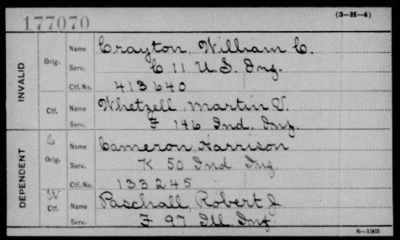 177070 (3-H-4)
INVALID
Orig. Name Crayton, William C.
Serv. C 11 U.S. Inf.
Ctf. No. 413640
Ctf. Name Whetzell Martin V.
F 146 Ind. Inf.
DEPENDENT
C
Orig. Name Cameron Harrison
Serv. K 50 Ind Inf
Ctf. No. 133245
W
Ctf. Name Paschall, Robert J
F 97 Ill. Inf.